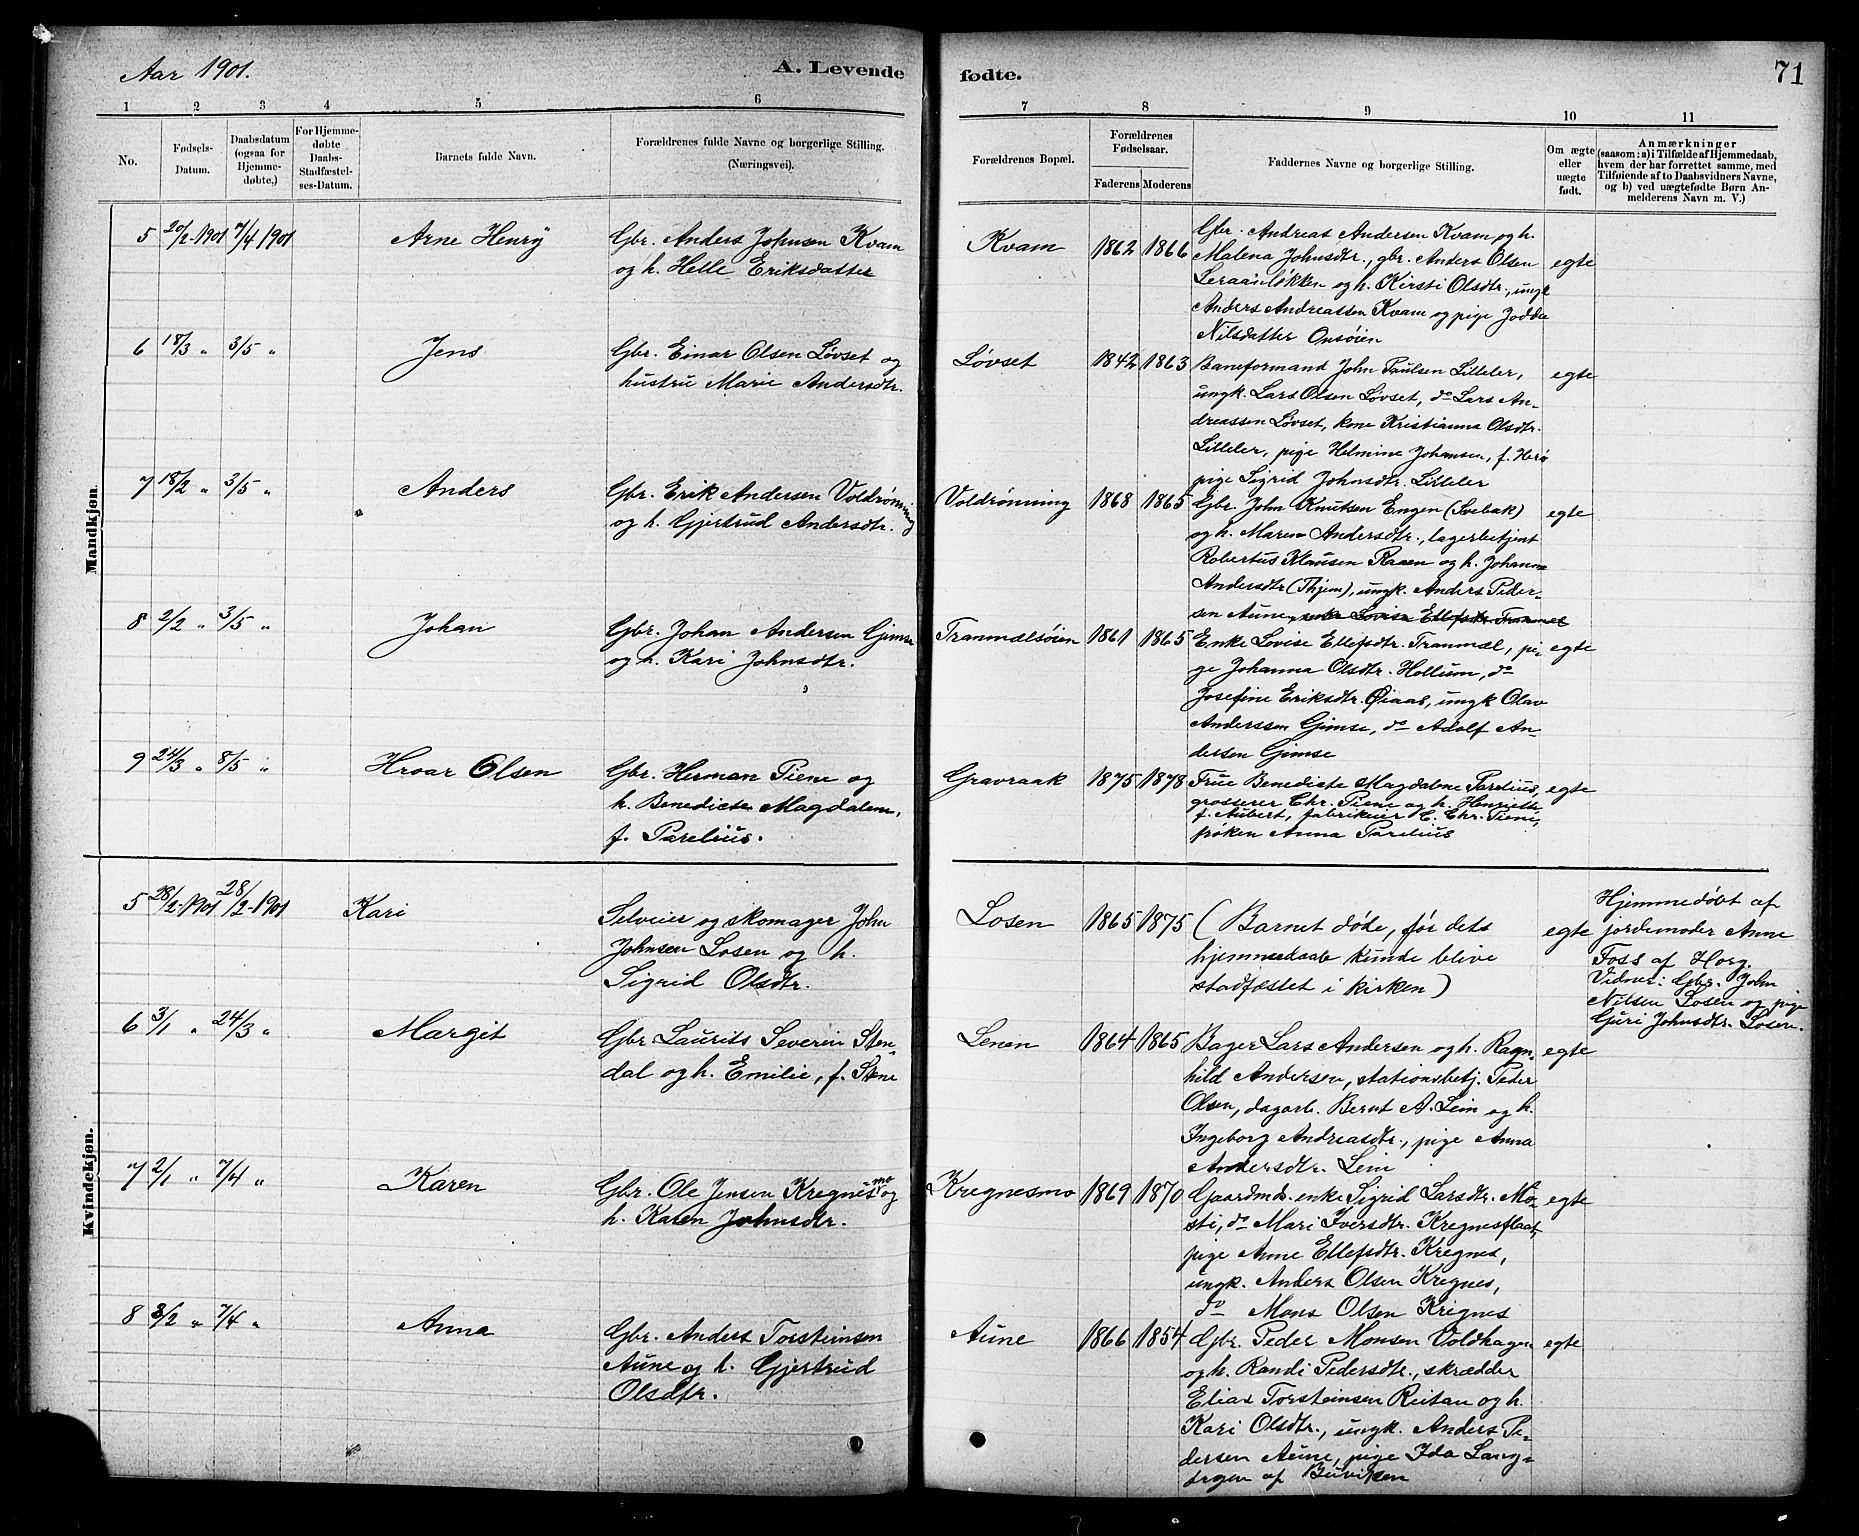 Aar 1901.
A. Levende fødte.
71
1 2 3 4 5 6 7 8 9 10 11
No.
Fødsels-
Datum.
Daabsdatum
(ogsaa for
Hjemme-
døbte.)
For Hjemme-
døbte
Daabs-
Stadfæstel-
ses-Datum.
Barnets fulde Navn.
Forældrenes fulde Navne og borgerlige Stilling.
(Næringsvei).
Forældrenes Bopæl.
Forældrenes
Fødselsaar.
Faderens Moderens
Faddernes Navne og borgerlige Stilling.
Om ægte
eller
uægte
født.
Anmærkninger
(saasom: a) i Tilfælde af Hjemmedaab,
hvem der har forrettet samme, med
Tilføiende af to Daabsvidners Navne,
og b) ved uægtefødte Børn An-
melderens Navn m. V.)
Mandkjøn.
5 20/2-1901 7/4 1901
Arne Henry
Gbr. Anders Johnsen Kvam
og h. Helle Eriksdatter
Kvam
1862 1866
Gbr. Andreas Andersen Kvam og h.
Malena Johnsdtr., gbr. Anders Olsen
Leraanløkken og h. Kirsti Olsdtr., ungk.
Anders Andreassen Kvam og pige Jodde
Nilsdatter Onsøien
egte
6 18/3 " 3/5 "
Jens
Gbr. Einar Olsen Løvset og
hustru Marie Andersdtr.
Løvset
1842 1863
Baneformand John Paulsen Lilleler,
ungk. Lars Olsen Løvset, do Lars An-
dreassen Løvset, kone Kristianna Olsdtr.
Lilleler, pige Helmine Johansen, f. Herø
pige Sigrid Johnsdtr. Lilleler
egte
7 18/2 " 3/5 "
Anders
Gbr. Erik Andersen Voldrønning
og h. Gjertrud Andersdtr.
Voldrønning
1868 1865
Gbr. John Knutsen Engen (Svebak)
og h. Maren Andersdtr., lagerbetjent
Robertus Klausen Raaen og h. Johanne
Andersdtr (Thjem), ungk. Anders Peder-
sen Aune, enke Lovise Ellefsdtr. Tranmæl
egte
8 2/2 " 3/5 "
Johan
Gbr. Johan Andersen Gimse
og h. Kari Johnsdtr.
Tranmælsøien
1861 1865
Enke Lovise Ellefsdtr. Tranmæl, pi-
ge Johanna Olsdtr. Hollum, do
Josefine Eriksdtr. Øiaas, ungk Olav
Anderssen Gimse, do Adolf An-
dersen Gimse
egte
9 24/3 " 8/5 "
Hroar Olsen
Gbr. Herman Piene og
h. Benedicte Magdalene,
f. Parelius.
Gravraak
1875 1878
Frue Benedicte Magdalene Parelius,
grosserer Chr. Piene og h. Henriette
f. Aubert, fabrikeier C. Chr. Piene,
frøken Anna Parelius
egte
Kvindekjøn.
5 28/2-1901 28/2-1901
Kari
Selveier og skomager John
Johnsen Losen og h.
Sigrid Olsdtr.
Losen
1865 1875
(Barnet døde, før dets
hjemmedaab kunde blive
stadfæstet i kirken)
egte
Hjemmedøbt af
jordemoder Anne
Foss af Horg.
Vidner: Gbr. John
Nilsen Losen og pige
Guri Johnsdtr. Losen.
6 3/1 " 24/3 "
Margit
Gbr Laurits Severin Sten-
dal og h. Emilie, f. Stene
Lenen
1864 1865
Bager Lars Andersen og h. Ragn-
hild Andersen, stationsbetj. Peder
Olsen, dagarb. Bernt A. Lein og h.
Ingeborg Andreasdtr., pige Anna
Andersdtr. Lein
egte
7 2/1 " 7/4 "
Karen
Gbr. Ole Jensen Kregnesmo og
h. Karen Johnsdtr.
Kregnesmo
1869 1870
Gaardmds. enke Sigrid Larsdtr. Mo-
sti, do Mari Iversdtr. Kregnesflaat,
pige Anne Ellefsdtr. Kregnes,
ungk. Anders Olsen Kregnes,
do Mons Olsen Krignes
egte
8 3/2 " 7/4 "
Anna
Gbr. Anders Torsteinsen
Aune og h. Gjertrud
Olsdtr.
Aune
1866 1854
Gbr. Peder Monsen Voldhagen
og h. Randi Pedersdtr., skrædder
Elias Torsteinsen Reitan og h.
Kari Olsdtr., ungk. Anders Pe-
dersen Aune, pige Ida Lang-
ørgen af Buviken
egte